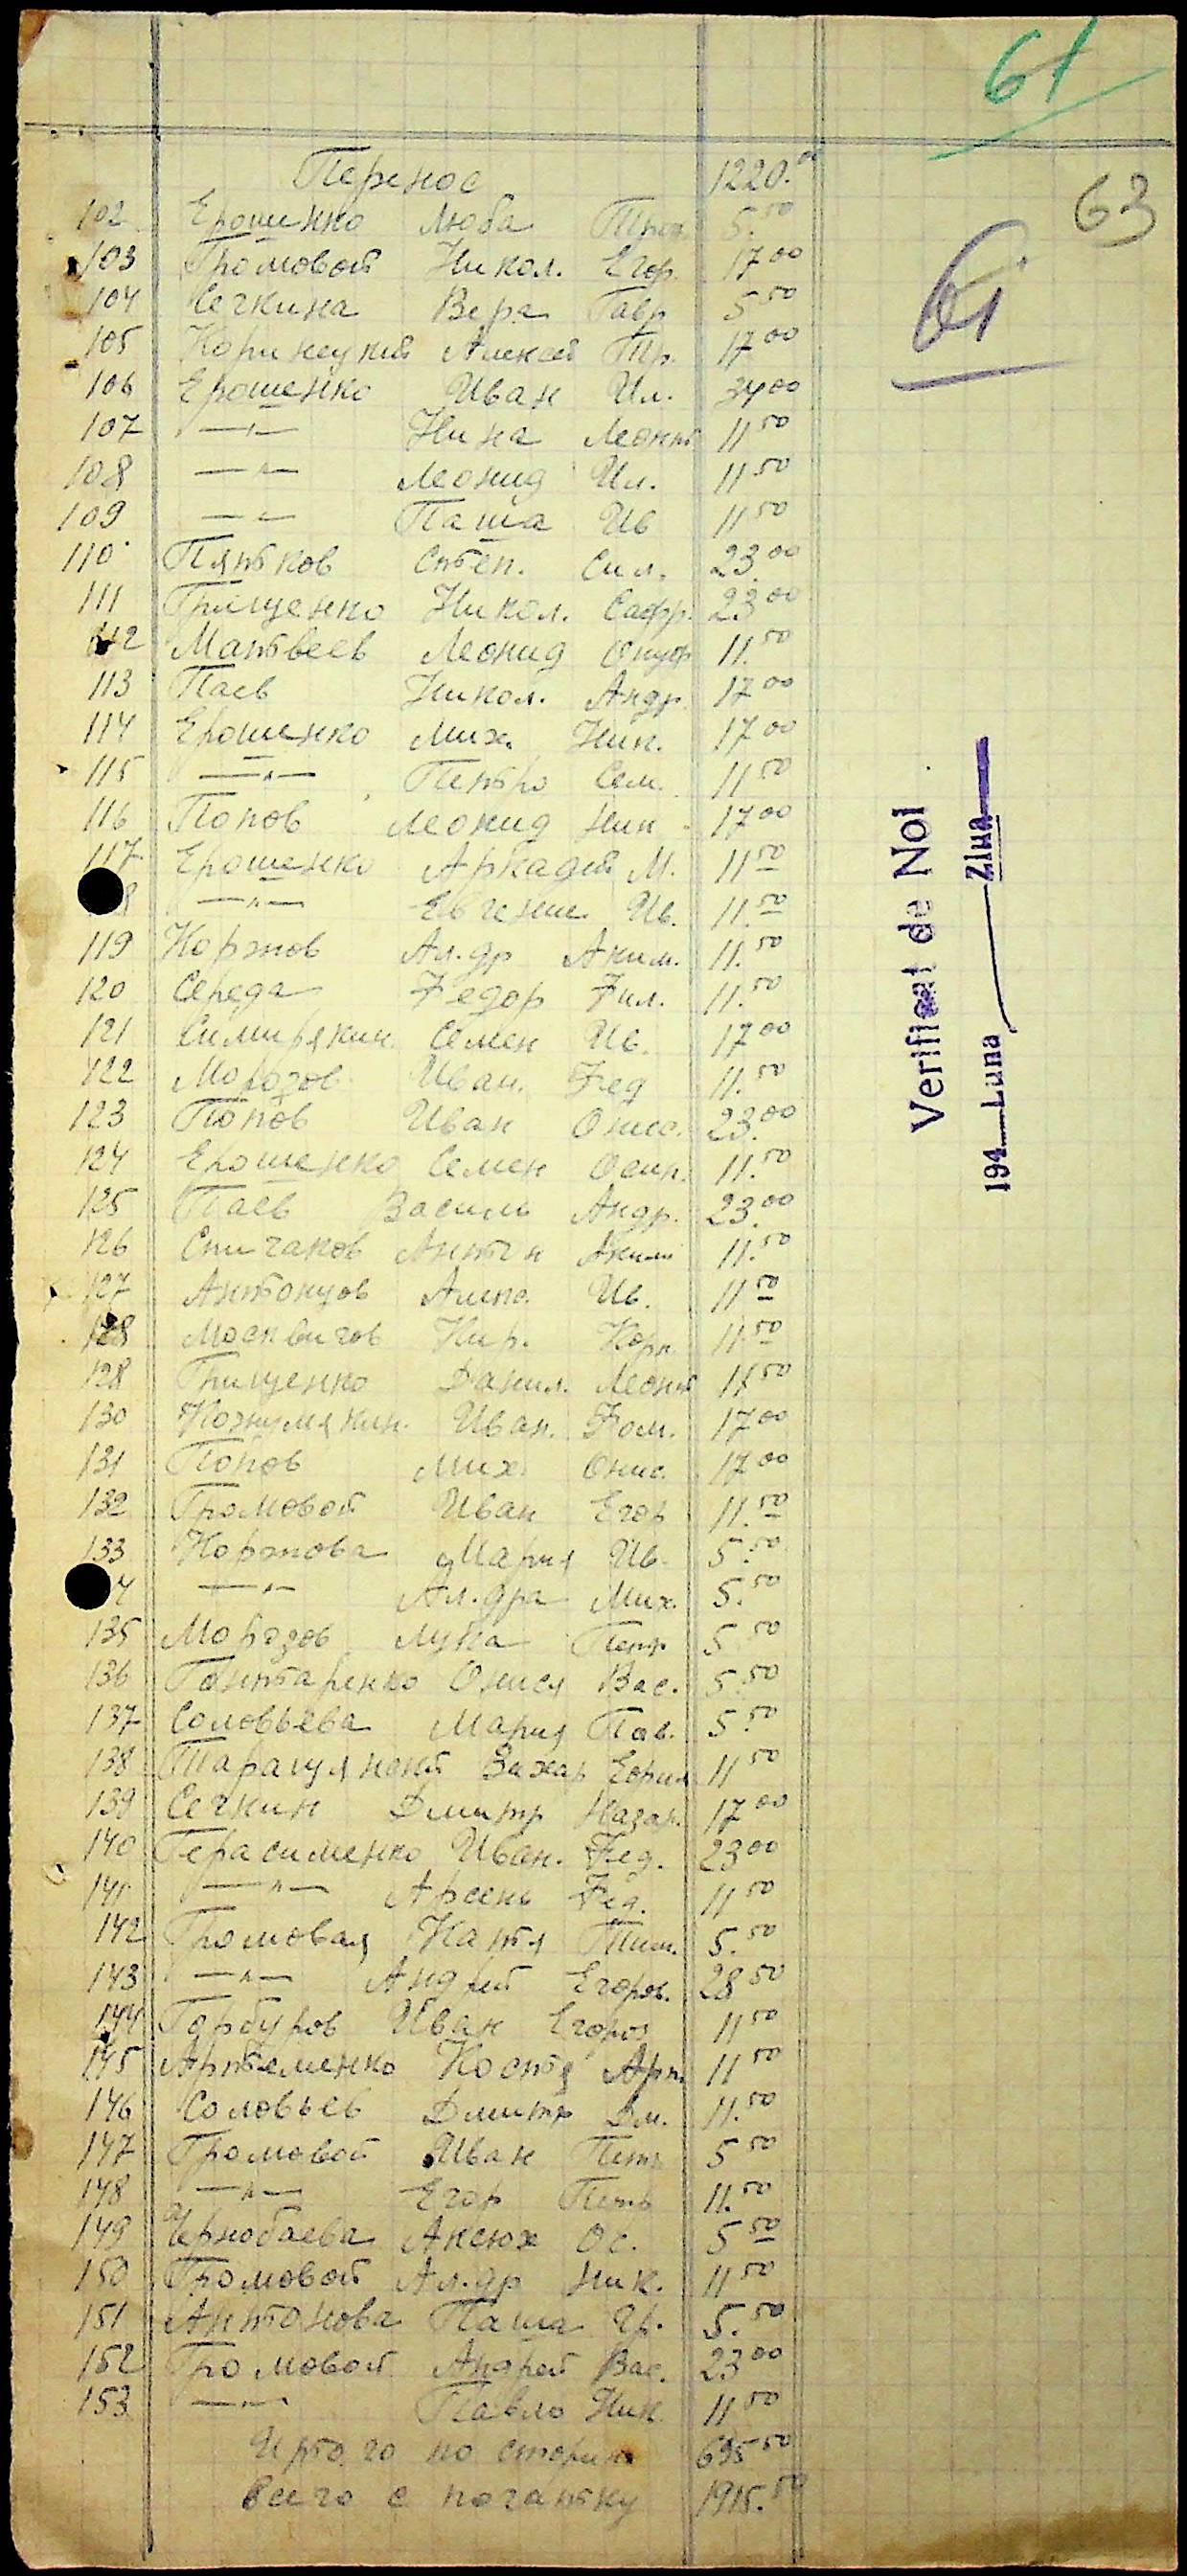 61
63
61
Перенос 1220.00
102 Ерошенко Люба Троф. 5.50
103 Громовой Никол. Егор. 17 00
104 Сечкина Вера Гавр 5 50
105 Алексей Тр. 17 00
106 Ерошенко Иван Ил. 34 00
107 —"— Нина Леонт 11 50
108 —"— Леонид Ил. 11 50
109 —"— Паша Ив 11 50
110 Пятков Степ. Сил. 23.00
111 Грищенко Никол. Сафр. 23 00
112 Матвеев Леонид Онуфр 11.50
113 Паев Никол. Андр. 17 00
114 Ерошенко Мих. Ник. 17 00
115 —"— Петро Сем. 11 50
116 Попов Леонид Ник 17 00
117 Ерошенко Аркадий М. 11 50
8 —"— Евгение Ив. 11.50
119 Коржов Ал.др Аким. 11.50
120 Середа Федор Фил. 11.50
121 Семен Ив. 17 00
122 Морозов Иван. Фед 11.50
123 Попов Иван Онис. 23.00
124 Ерошенко Семен Осип. 11.50
125 Паев Василь Андр. 23.00
126 Спичаков Антон Аким 11.50
127 Антонцов Ив. 11 50
128 Москвичов Кир. Корн 11.50
128 Грищенко Данил. Леонт 11 50
130 Кожумякин. Иван. Фом. 17 00
131 Попов Мих. Онис. 17 00
132 Громовой Иван Егор 11.50
133 Коржова Мария Ив. 5.50
4 —"— Ал.дра Мих. 5.50
135 Морозов Лука Петр 5 50
136 Онися Вас. 5.50
137 Соловьева Мария Пав. 5.50
138 Захар 11 50
139 Сечкин Дмитр Назар. 17 00
140 Герасименко Иван. Фед. 23 00
141 —"— Арсень Фед. 11 50
142 Громовая Катя Тим. 5.50
143 —"— Андрей Егоров. 28 50
144 Горбуров Иван Егоров 11 50
145 Артеменко Костя Арт. 11 50
146 Соловьев Дмитр Дм. 11.50
147 Громовой Иван Петр 5 50
148 —"— Егор Петр 11.50
149 Чернобаева Аксюх Ос. 5 50
150 Громовой Ал.др Ник. 11 50
151 Антонова Паша Гр. 5.50
152 Громовой Андрей Вас. 23 00
153 —"— Павло Ник 11 50
Итого по сторін 695 50
Всего с початку 1915.50
Verificat de Noi
194 Luna Ziua